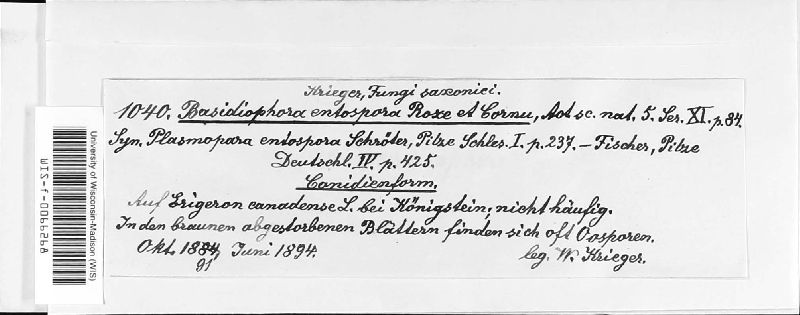 Krieger, Fungi saxonici.
1040. Basidiophora entospora Roze et Cornu, Act sc. nat. 5. Ser. XI. p. 84.
Syn. Plasmopara entospora Schröter, Pilze Schles. I. p. 237. — Fischer, Pilze
Deutschl. IV. p. 425.
Conidienform.
Auf Erigeron canadense L. bei Königstein; nicht häufig.
In den braunen abgestorbenen Blättern finden sich oft Oosporen.
Okt. 1884, Juni 1894. leg. W. Krieger.
91
University of Wisconsin-Madison (WIS)
WIS-f-0066928